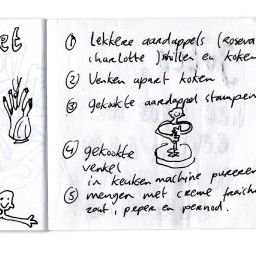 et
① Lekkere aardappels (Roseva
charlotte) stillen en koken
② Venken apart koken
③ gekookte aardappel stampen
④ gekookte
venkel
in keuken machine pureren
⑤ mengen met creme fraiche
zout, peper en pernod.